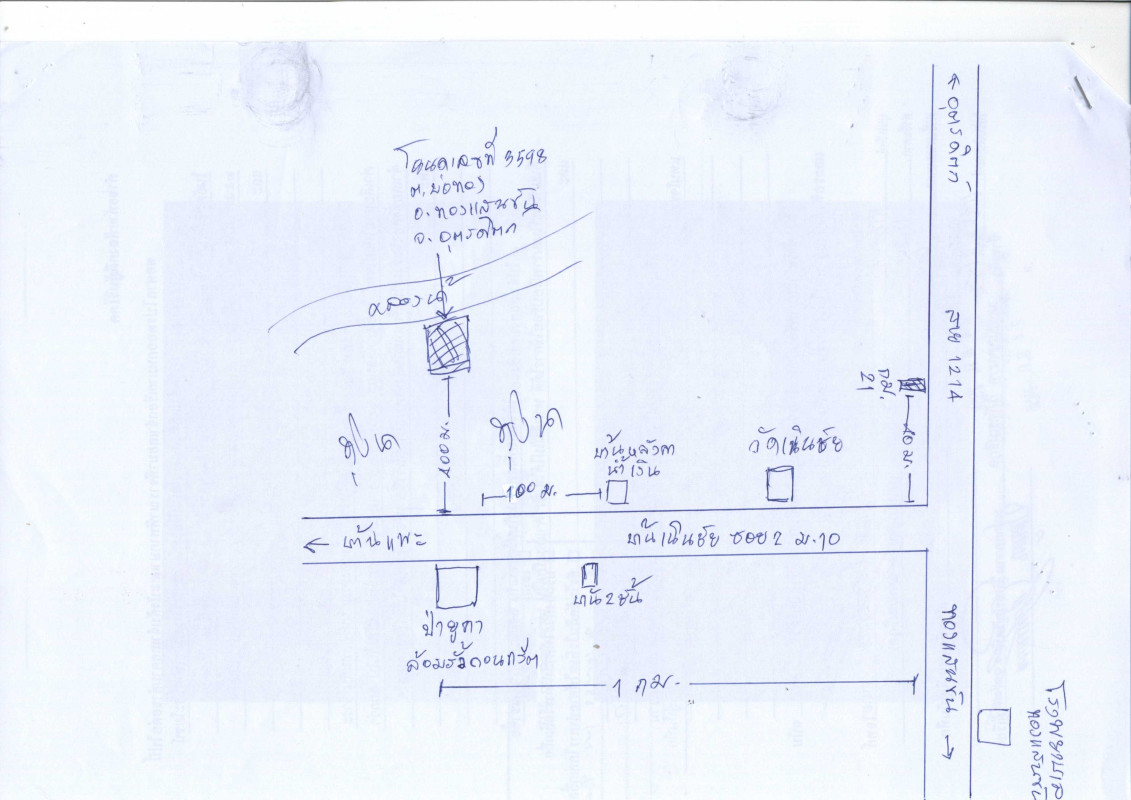 โฉนดเลขที่ 3598
ต.บ่อทอง
อ.ทองแสนขัน
จ.อุตรดิตถ์
คลองน้ำ
ทุ่งนา
ทุ่งนา
400 ม.
100 ม.
บ้านหลังคา
น้ำเงิน
วัดเนินชัย
กม.
21
40 ม.
← อุตรดิตถ์
สาย 1214
← บ้านแพะ
บ้านเนินชัย ซอย 2 ม.10
บ้าน 2 ชั้น
ป่ายูคา
ล้อมรั้วคอนกรีต
1 กม.
ทองแสนขัน →
โรงพยาบาล
ทองแสนขัน